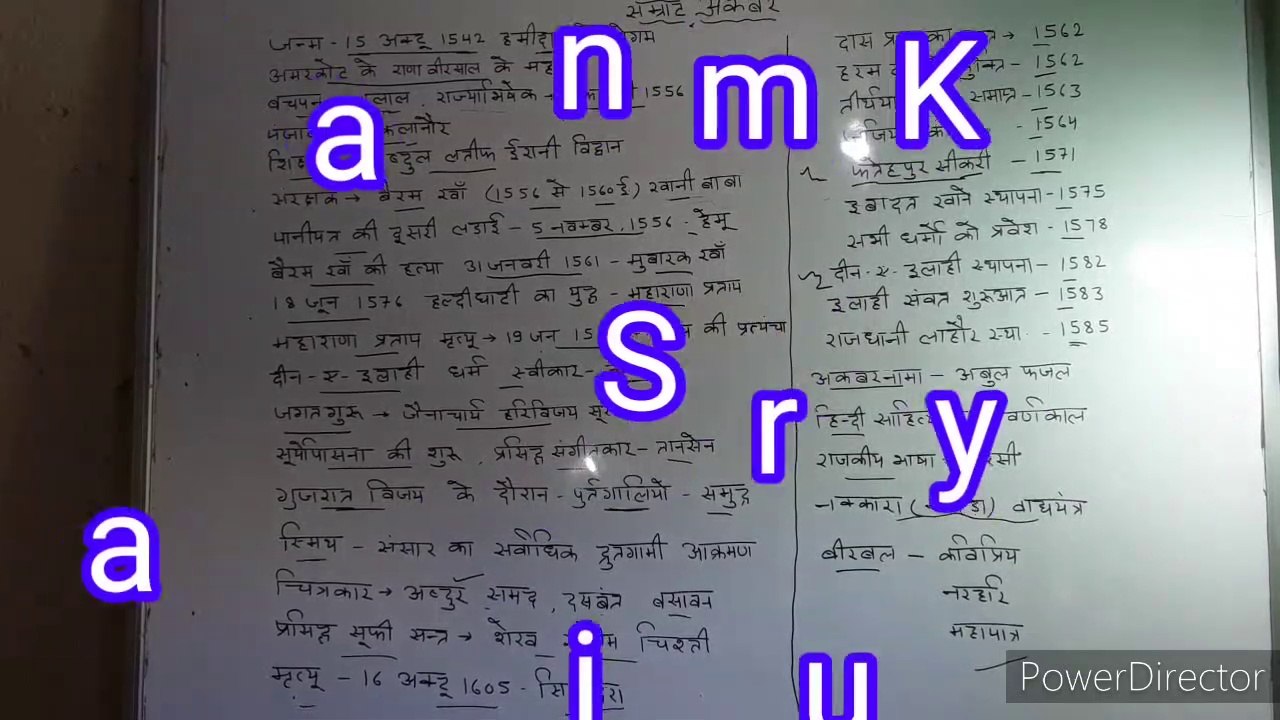 सम्राट अकबर
जन्म - 15 अक्टू 1542 हमीदा बेगम
अमरकोट के राणा वीरसाल के महल
बचपन लाल, राज्याभिषेक → 1556
कलानौर
अब्दुल लतीफ ईरानी विद्वान
संरक्षक → बैरम खाँ (1556 से 1560 ई) खानी बाबा
पानीपत की दूसरी लडाई - 5 नवम्बर, 1556 - हेमू
बैरम खाँ की हत्या 31 जनवरी 1561 - मुबारक खाँ
18 जून 1576 हल्दीघाटी का युद्ध - महाराणा प्रताप
महाराणा प्रताप मृत्यू → 19 जन 15 की प्रत्यंचा
दीन-ए-इलाही धर्म स्वीकार -
जगतगुरू → जैनाचार्य हरिविजय सूरी
सूर्योपासना की शुरू, प्रसिद्ध संगीतकार - तानसेन
गुजरात विजय के दौरान - पुर्तगालियो - समुद्र
स्मिथ - संसार का सर्वाधिक द्रुतगामी आक्रमण
चित्रकार → अब्दुर्र समद, दसवंत बसावन
प्रसिद्ध सूफी सन्त → शेख चिश्ती
मृत्यू - 16 अक्टू 1605 -
दास → 1562
हरम - 1562
समाप्त - 1563
- 1564
फतेहपुर सीकरी - 1571
इबादत खाने स्थापना - 1575
सभी धर्मो को प्रवेश - 1578
दीन-ए-इलाही स्थापना - 1582
इलाही संवत शुरूआत - 1583
राजधानी लाहौर स्था. - 1585
अकबरनामा - अबुल फजल
हिन्दी साहित्य स्वर्णकाल
राजकीय भाषा
नक्कारा वाद्ययंत्र
बीरबल - कविप्रिय
नरहरि
महापात्र
a n m K
S r y
a i u
PowerDirector